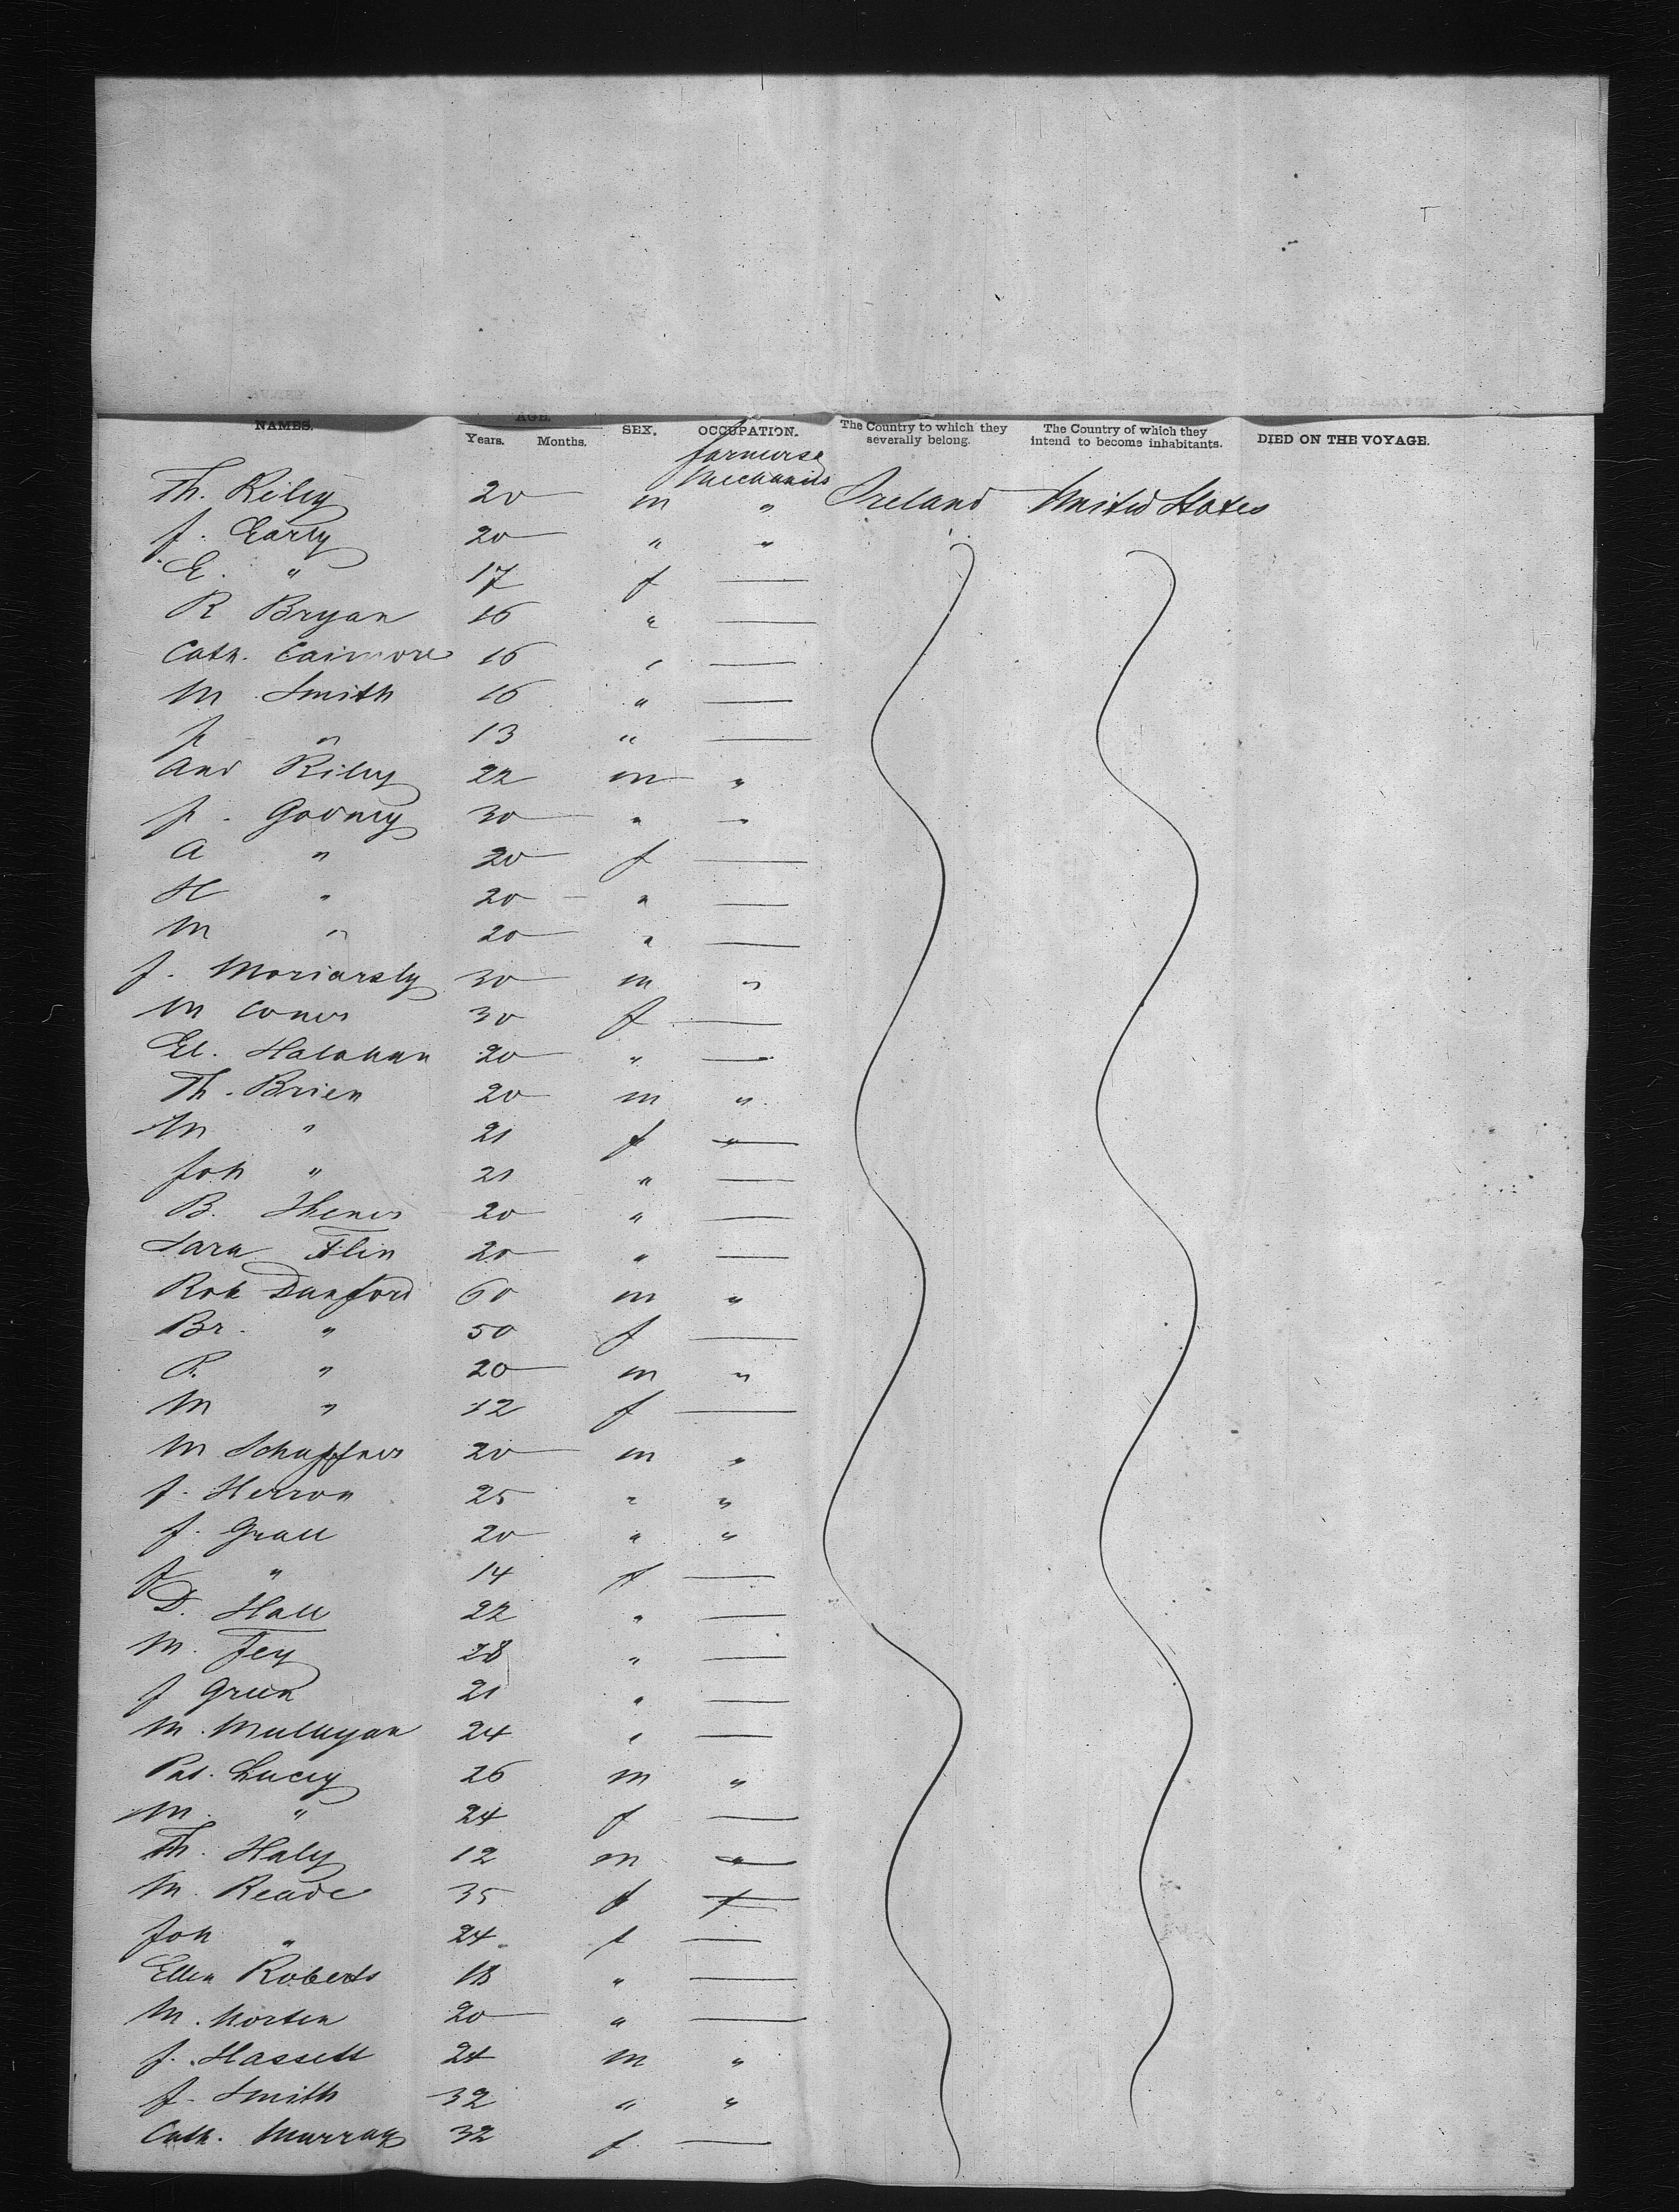 NAMES. AGE. Years. Months. SEX. OCCUPATION. The Country to which they severally belong. The Country of which they intend to become inhabitants. DIED ON THE VOYAGE.
farmers &
Mechanics
Th. Riley 20 m " Ireland United States
J. Early 20 " "
E. " 17 f —
R Bryan 16 " —
Cath. 16 " —
M Smith 16 " —
p " 13 " —
And Riley 22 m "
p. Godney 30 " "
A " 20 f —
H " 20 " —
M " 20 " —
J. Moriarsty 30 m "
M Coner 30 f —
El. Halahan 20 " —
Th. Brien 20 m "
M " 21 f —
Joh " 21 " —
B. Shener 20 " —
Sara Flin 20 " —
Rob Dunford 60 m "
Br. " 50 f —
R. " 20 m "
M " 12 f —
M Schaffner 20 m "
J. Herron 25 " "
J. Grall 20 " "
J " 14 f —
D. Hall 22 " —
M. Fey 28 " —
J Green 21 " —
M. Mulligan 24 " —
Pat. Lucey 26 m "
M. " 24 f —
Th. Haly 12 m —
M. Reade 35 f —
Joh " 24 f —
Ellen Roberts 18 " —
M. Norten 20 " —
J. Hassett 24 m "
J. Smith 32 " "
Cath. Murray 32 f —